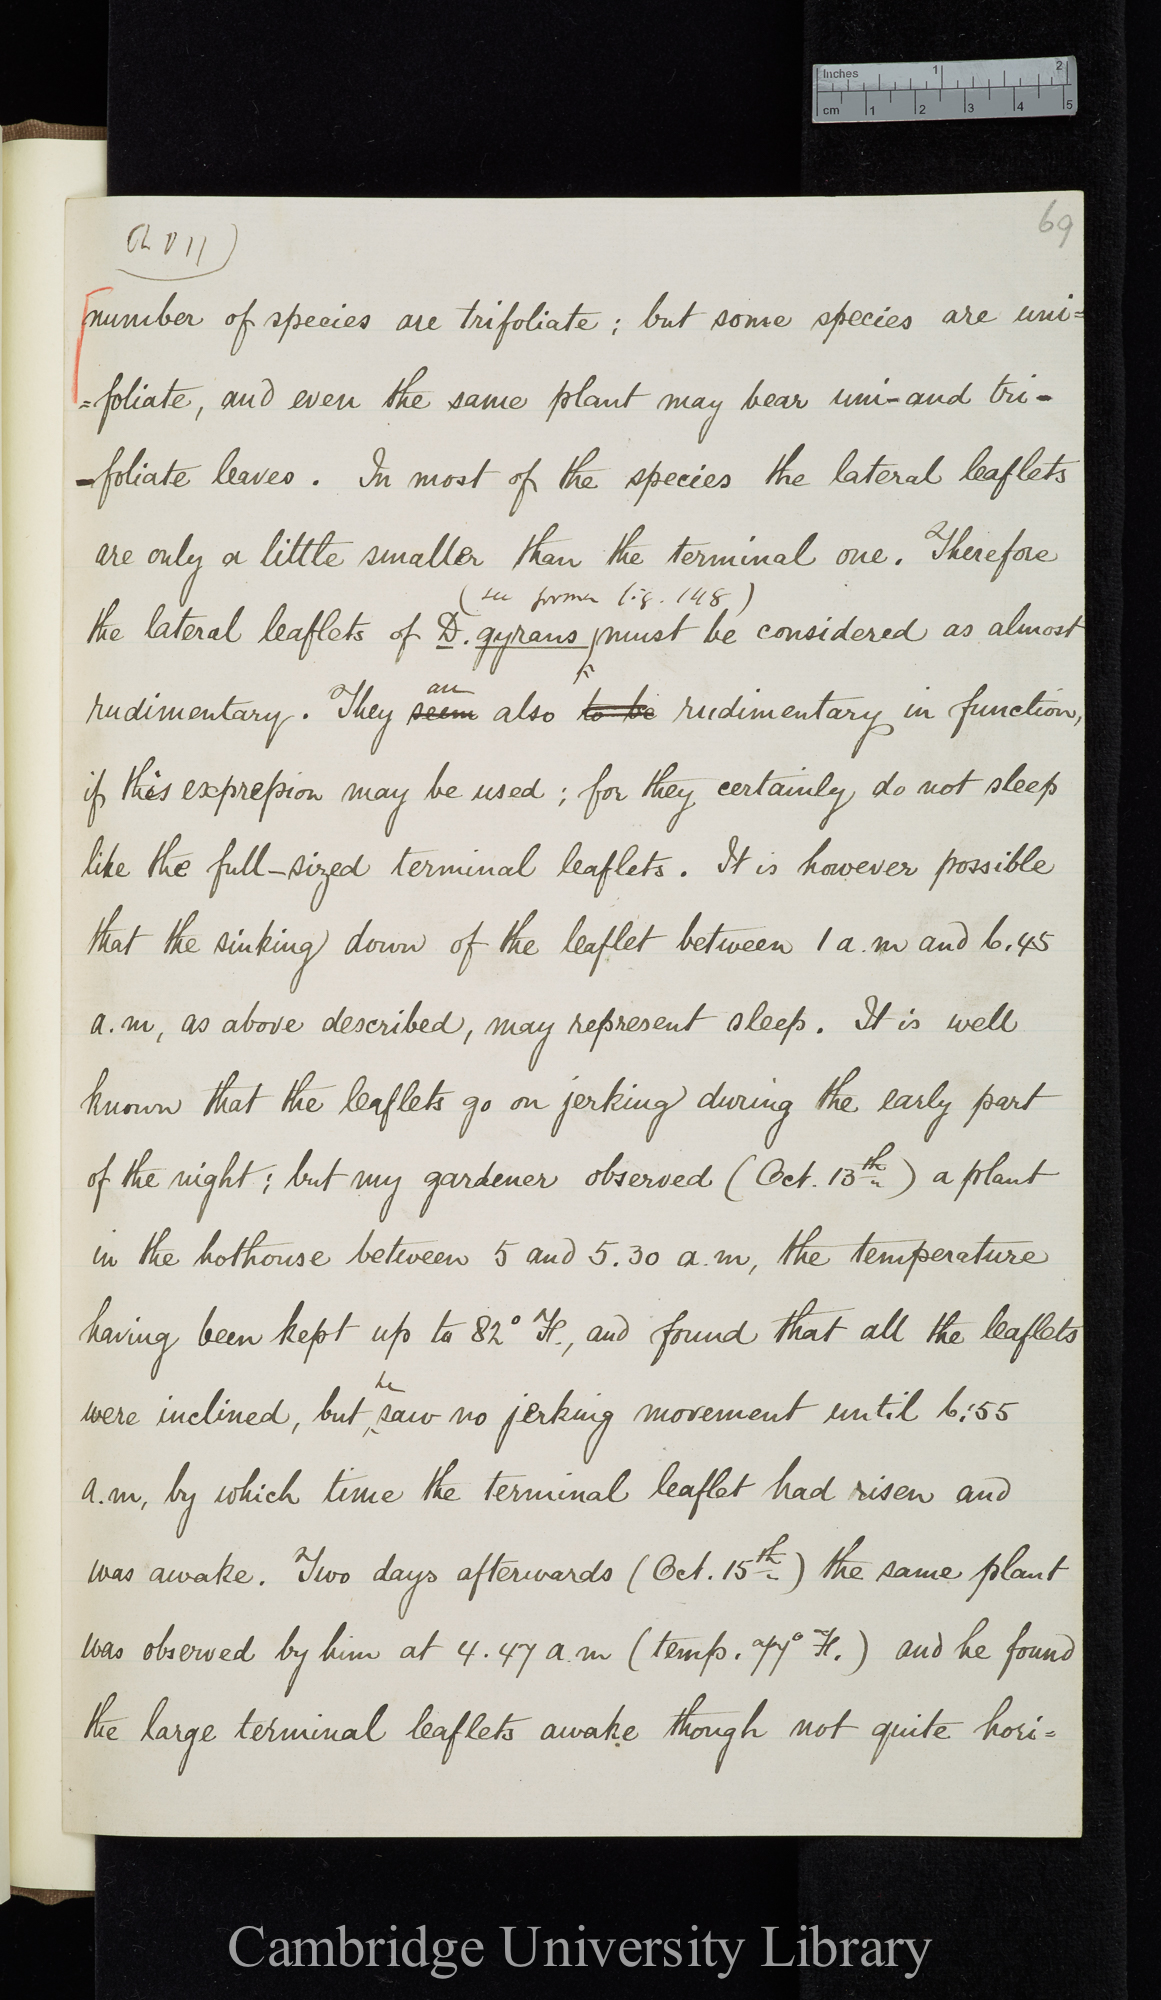 Inches 1 2
cm 1 2 3 4 5
69
Ch VII
number of species are trifoliate; but some species are uni=
=foliate, and even the same plant may bear uni-and tri-
-foliate leaves. In most of the species the lateral leaflets
are only a little smaller than the terminal one. Therefore
(see former fig. 148)
the lateral leaflets of D. gyrans, must be considered as almost
are
rudimentary. They seem also to be rudimentary in function,
if this expression may be used; for they certainly do not sleep
like the full-sized terminal leaflets. It is however possible
that the sinking down of the leaflet between 1 a.m and 6.45
a.m, as above described, may represent sleep. It is well
known that the leaflets go on jerking during the early part
of the night; but my gardener observed (Oct. 13th) a plant
in the hothouse between 5 and 5.30 a.m, the temperature
having been kept up to 82° F., and found that all the leaflets
he
were inclined, but saw no jerking movement until 6.55
a.m, by which time the terminal leaflet had risen and
was awake. Two days afterwards (Oct. 15th) the same plant
was observed by him at 4.47 a.m (temp. 77° F.) and he found
the large terminal leaflets awake though not quite hori=
Cambridge University Library